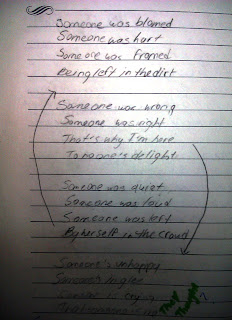 Someone was blamed
Someone was hurt
Someone was framed
Being left in the dirt
Someone was wrong
Someone was right
That's why I'm here
To no one's delight
Someone was quiet
Someone was loud
Someone was left
By herself in the crowd
Someone's unhappy
Someone's
Someone is crying
That
Thought?